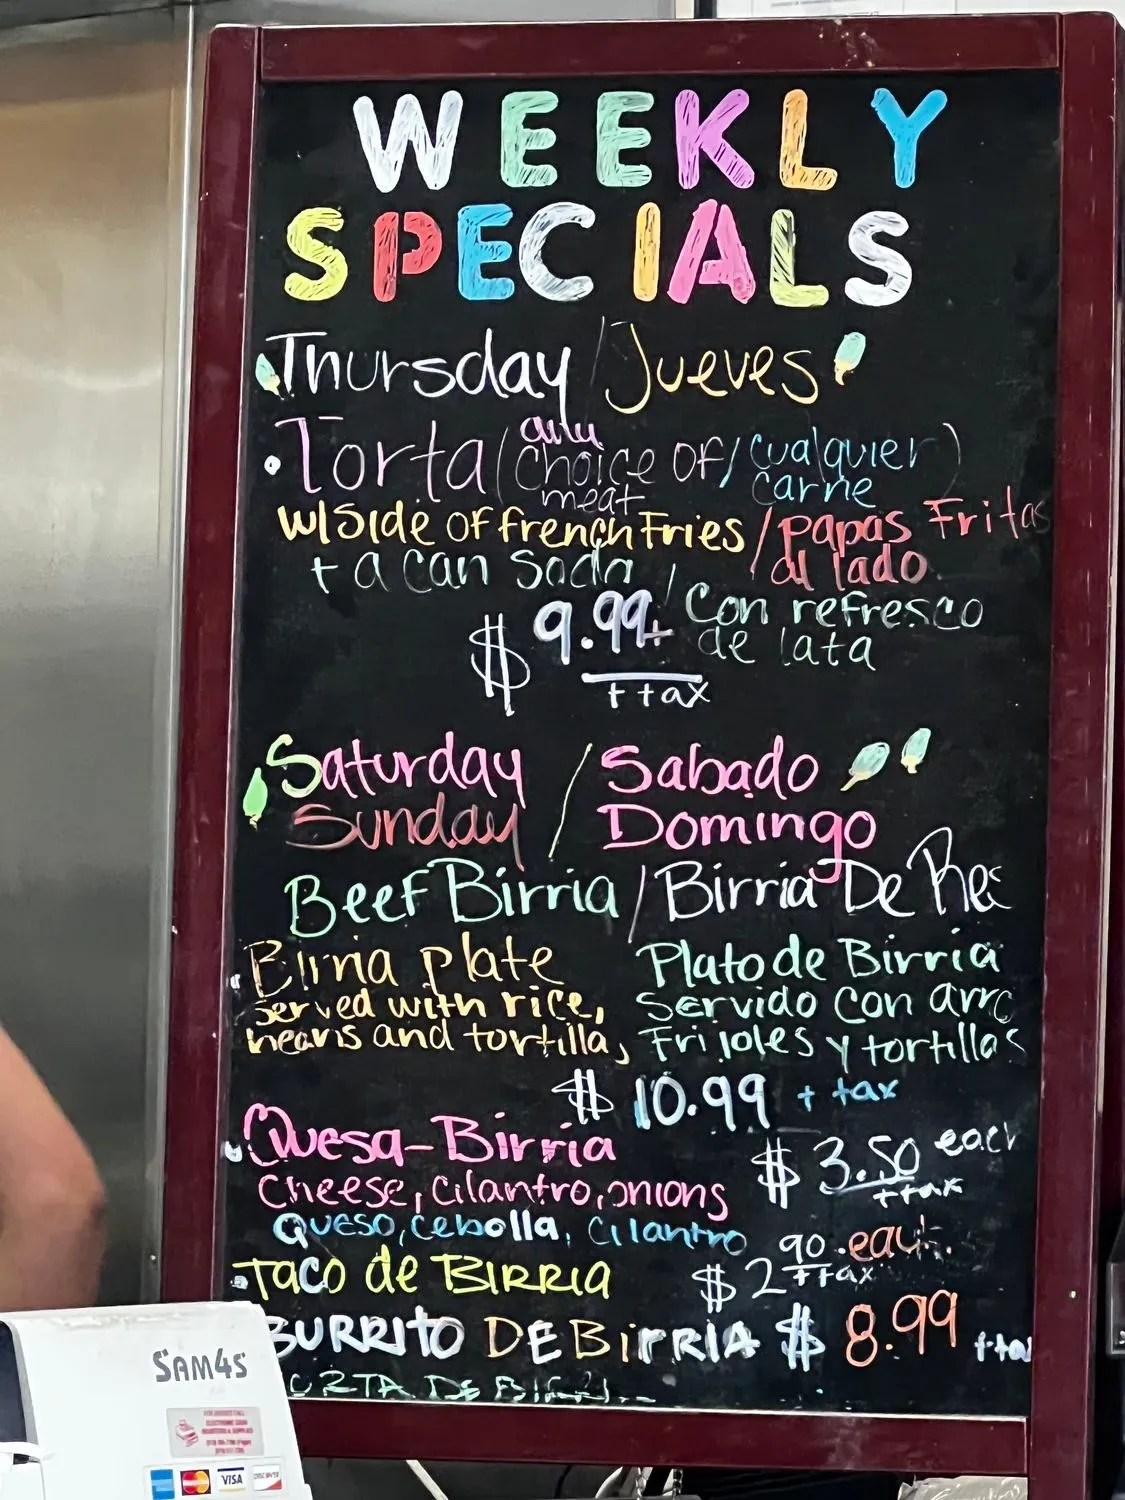 WEEKLY
SPECIALS
Thursday / Jueves
• Torta (any choice of meat / cualquier carne)
w/ side of french Fries / papas Fritas al lado
+ a can soda / Con refresco de lata
$ 9.99 + tax
Saturday / Sabado
Sunday / Domingo
Beef Birria / Birria De Res
• Birria plate
served with rice,
beans and tortilla,
Plato de Birria
Servido con arro
Frijoles y tortillas
$ 10.99 + tax
• Quesa-Birria $ 3.50 each + tax
Cheese, cilantro, onions
Queso, cebolla, Cilantro
• Taco de BIRRIA $ 2.90 each + tax
BURRITO DE BIRRIA $ 8.99 + tax
SAM4S
VISA
DISCOVER